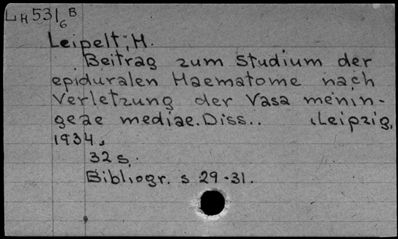 LH531/6 B
Leipelt, H.
Beitrag zum Studium der
epiduralen Haematome nach
Verletzung der Vasa menin-
geae mediae. Diss.. Leipzig,
1934.
32 s.
Bibliogr. s 29-31.